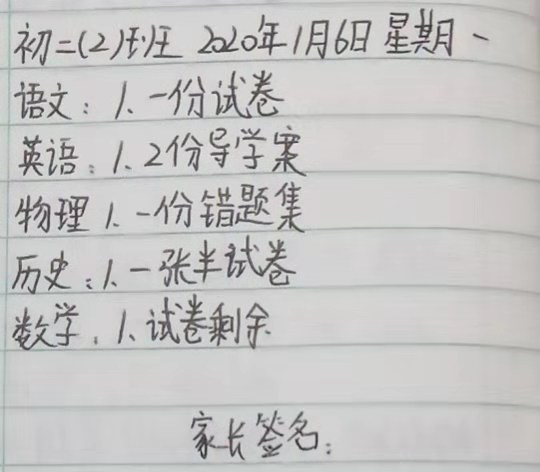 初二(2)班 2020年1月6日 星期一
语文：1、一份试卷
英语：1、2份导学案
物理 1、一份错题集
历史：1、一张半试卷
数学：1、试卷剩余
家长签名：